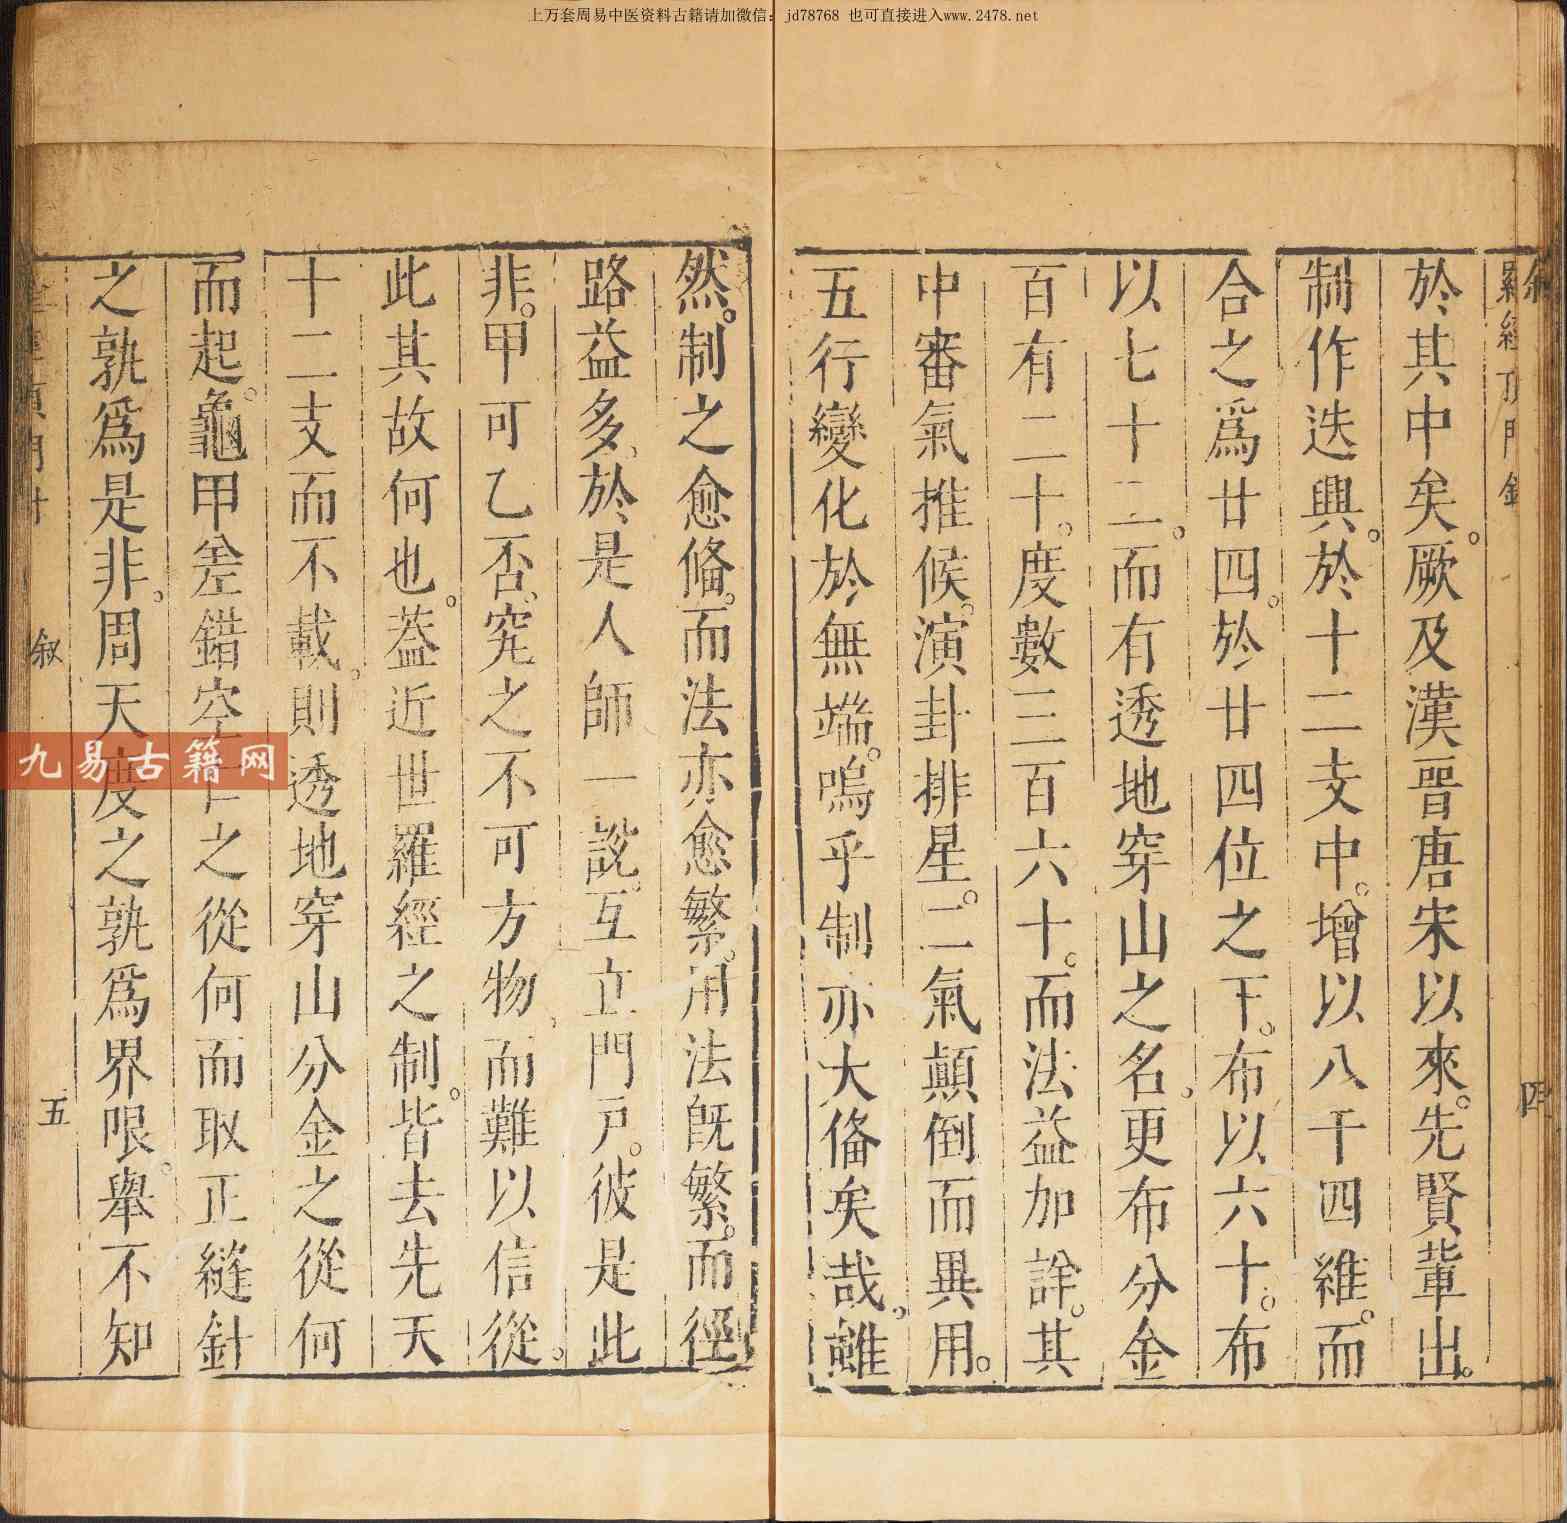 上万套周易中医资料古籍请加微信: jd78768 也可直接进入www.2478.net
羅經頂門針
於其中矣。厥及漢晉唐宋以來。先賢輩出。
制作迭興。於十二支中。增以八干四維。而
合之爲廿四。於廿四位之下。布以六十。布
以七十二。而有透地穿山之名。更布分金
百有二十。度數三百六十。而法益加詳。其
中審氣推候。演卦排星。二氣顛倒而異用。
五行變化於無端。嗚乎制亦大俻矣哉。雖
然。制之愈俻。而法亦愈繁。用法旣繁。而徑
路益多。於是人師一說。互立門戶。彼是此
非。甲可乙否。究之不可方物。而難以信從。
此其故何也。葢近世羅經之制。皆去先天
十二支而不載。則透地穿山分金之從何
而起。龜甲差錯空亡之從何而取正縫針
之孰爲是非。周天度之孰爲界限。舉不知
叙
五
四
九易古籍网